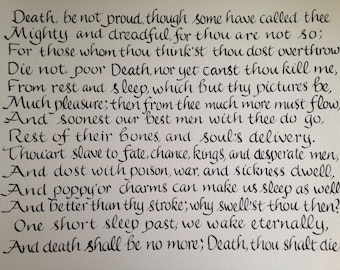 Death, be not proud, though some have called thee
Mighty and dreadful, for thou are not so;
For those whom thou think'st thou dost overthrow
Die not, poor Death, nor yet canst thou kill me,
From rest and sleep, which but thy pictures be,
Much pleasure; then from thee much more must flow,
And soonest our best men with thee do go,
Rest of their bones, and soul's delivery.
Thou'art slave to fate, chance, kings, and desperate men,
And dost with poison, war, and sickness dwell,
And poppy'or charms can make us sleep as well
And better than thy stroke; why swell'st thou then?
One short sleep past, we wake eternally,
And death shall be no more; Death, thou shalt die